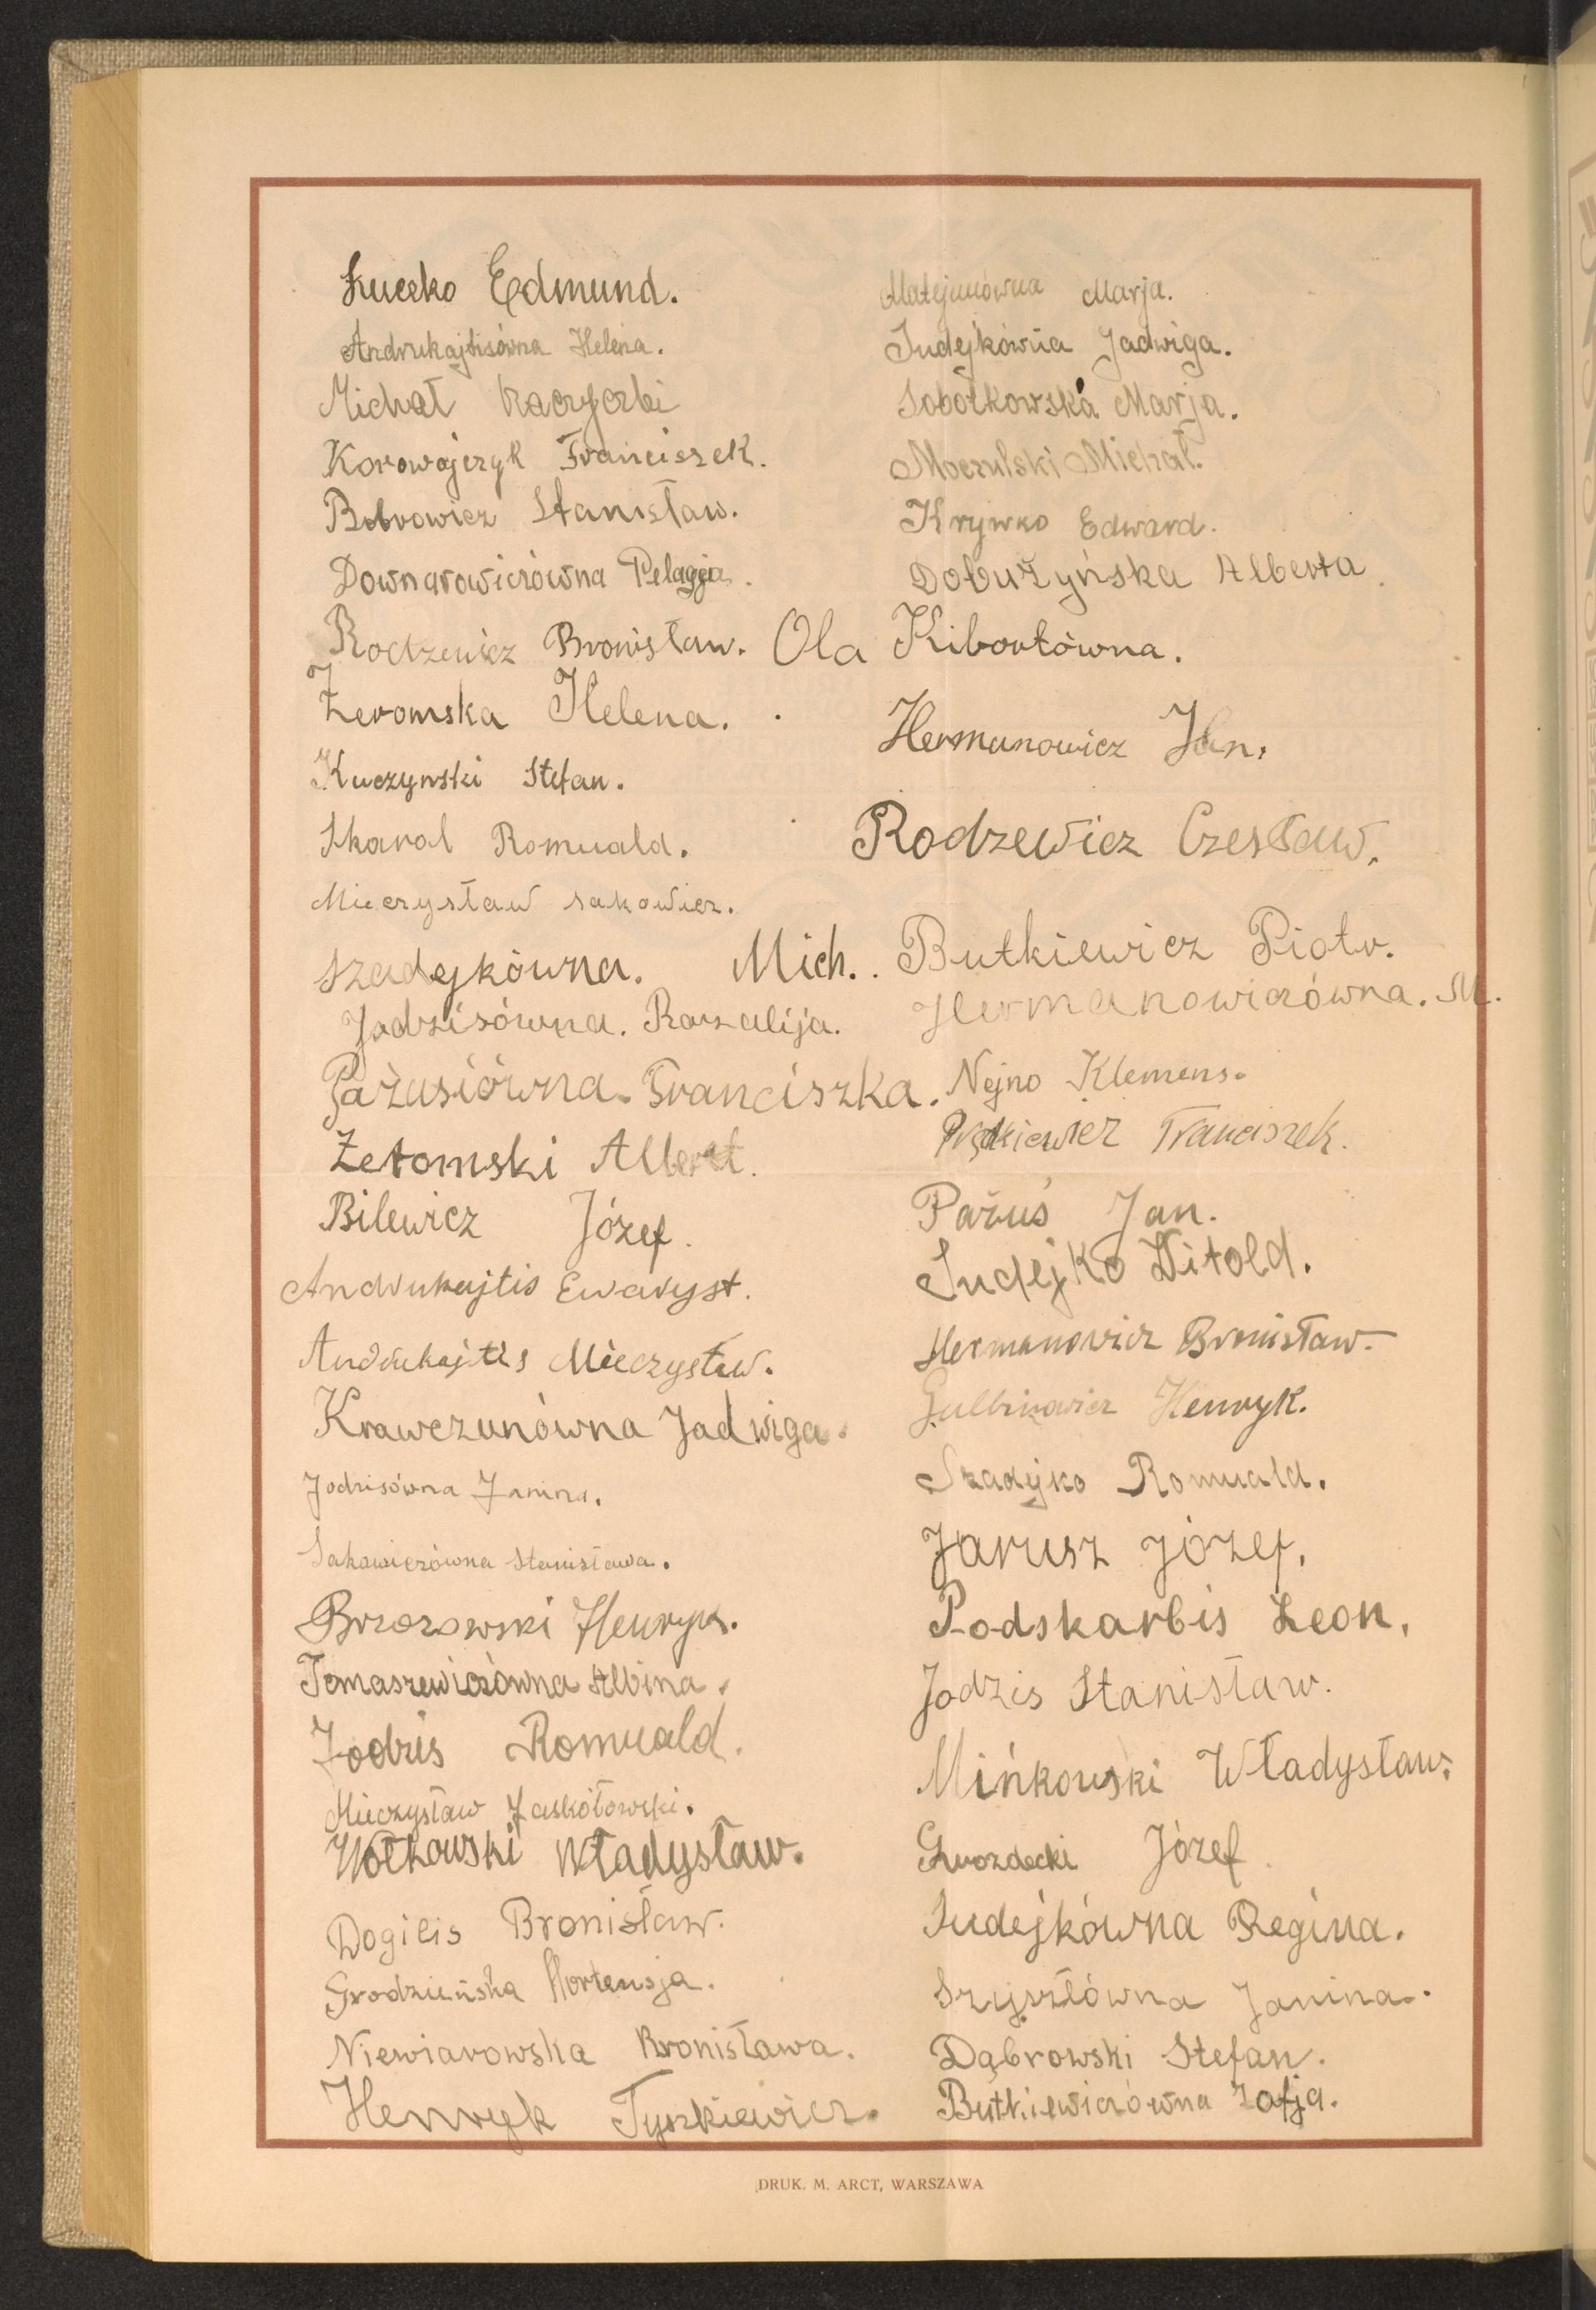 Łuczko Edmund.
Andrukajtisówna Helena.
Michał
Korowajczyk Franciszek.
Bobrowicz Stanisław.
Downarowiczówna Pelagja.
Rodzewicz Bronisław.
Żeromska Helena.
Kuczynski Stefan.
Skarol Romuald.
Mieczysław Sakowicz.
Szadejkówna. Mich.
Jodzisówna. Rozalija.
Pażusiówna. Franciszka.
Żeromski Albert.
Bilewicz Józef.
Andrukajtis Ewaryst.
Andrukajtis Mieczysław.
Krawczunówna Jadwiga.
Jodzisówna Janina.
Sakowiczówna Stanisława.
Brzozowski Henryk.
Tomaszewiczówna Albina.
Jodzis Romuald.
Mieczysław Jaskółowski.
Wołkowski Władysław.
Dogilis Bronisław.
Grodzieńska Hortensja.
Niewiarowska Bronisława.
Henryk Tyszkiewicz.
Matejunówna Marja.
Sudejkówna Jadwiga.
Sobotkowska Marja.
Moczulski Michał.
Krywko Edward.
Dobużyńska Alberta.
Ola Kibortówna.
Hermanowicz Jan.
Rodzewicz Czesław.
Butkiewicz Piotr.
Hermanowiczówna. M.
Nejno Klemens.
Franciszek.
Pażuś Jan.
Sudejko Witold.
Hermanowicz Bronisław.
Gulbinowicz Henryk.
Szadejko Romuald.
Jarusz Józef.
Podskarbis Leon.
Jodzis Stanisław.
Mińkowski Władysław.
Gwozdecki Józef.
Sudejkówna Regina.
Szyszłówna Janina.
Dąbrowski Stefan.
Butkiewiczówna Zofja.
DRUK. M. ARCT, WARSZAWA